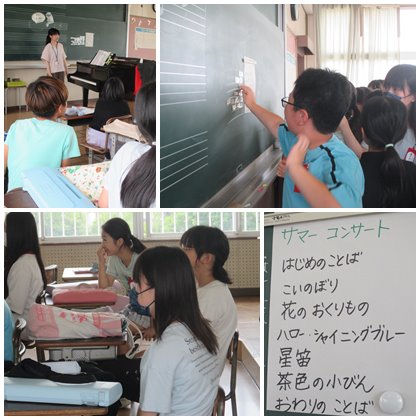 サマー コンサート
はじめのことば
こいのぼり
花の おくりもの
ハロー・シャイニングブルー
星笛
茶色の小びん
おわりの ことば